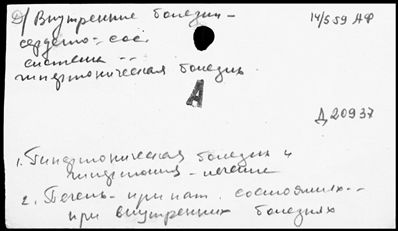 2) Внутренние болезни -
сердечно-сос.
система --
гипертоническая болезнь
14/5 59 АФ
А
Д 20937
1. Гипертоническая болезнь и
гипертония - лечение
2. Печень - при пат. состояниях --
при внутренних болезнях